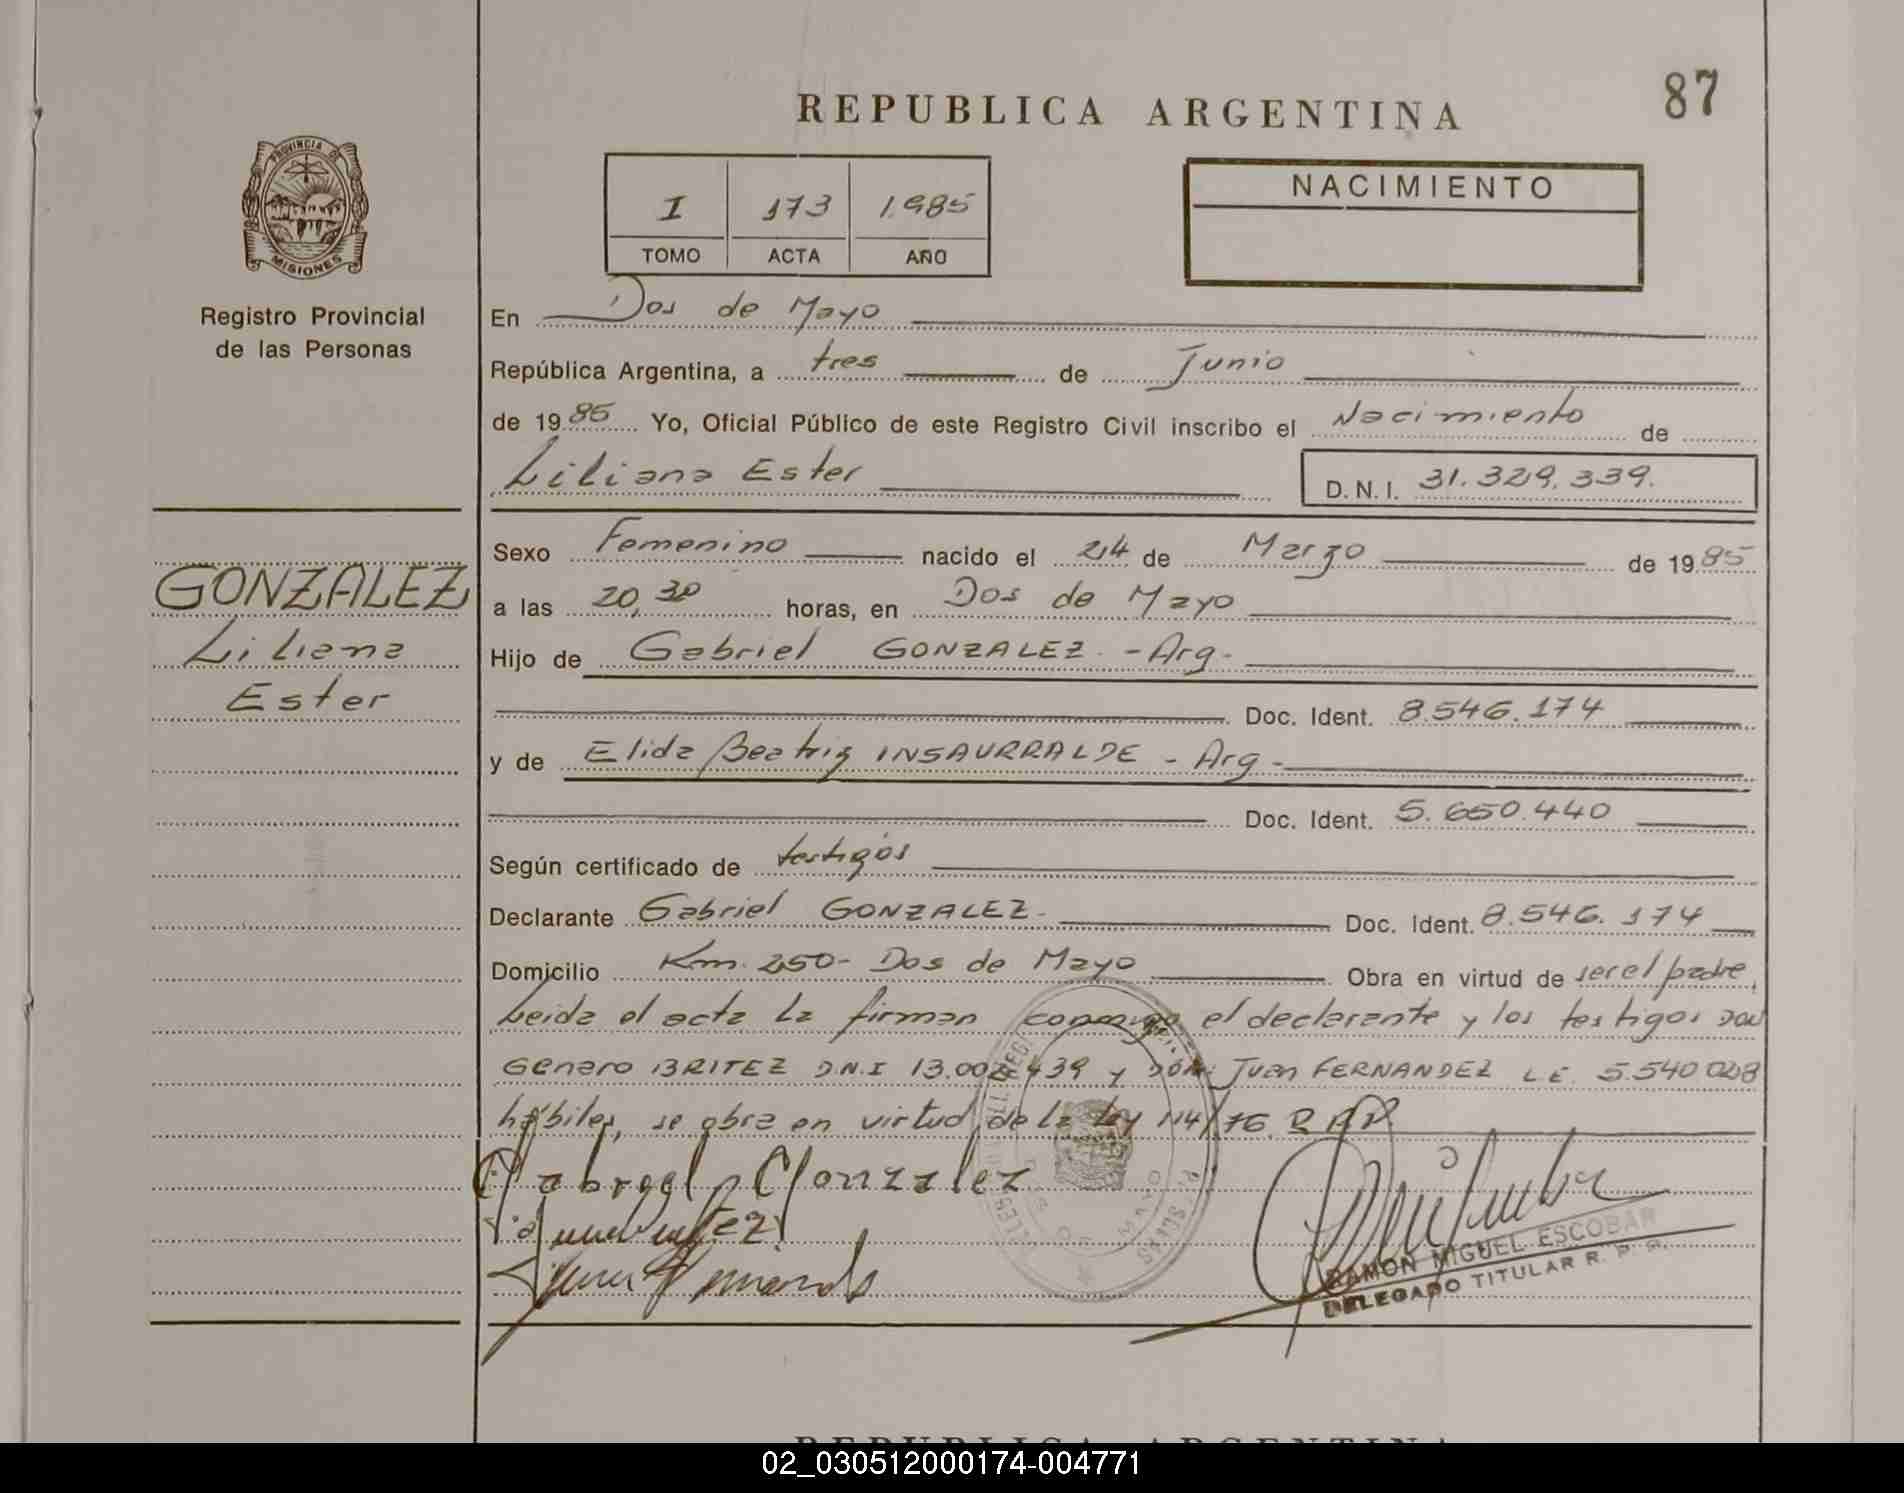 87
REPUBLICA ARGENTINA
PROVINCIA DE
MISIONES
Registro Provincial
de las Personas
I 173 1.985
TOMO ACTA AÑO
NACIMIENTO
En Dos de Mayo
República Argentina, a tres de Junio
de 1985 Yo, Oficial Público de este Registro Civil inscribo el Nacimiento de
Liliana Ester D.N.I. 31.329.339.
GONZALEZ
Liliana
Ester
Sexo Femenino nacido el 24 de Marzo de 1985
a las 20,30 horas, en Dos de Mayo
Hijo de Gabriel GONZALEZ - Arg-
Doc. Ident. 8.546.174
y de Elida Beatriz INSAURRALDE - Arg-
Doc. Ident. 5.650.440
Según certificado de testigos
Declarante Gabriel GONZALEZ- Doc. Ident. 8.546.174
Domicilio Km. 250- Dos de Mayo Obra en virtud de ser el padre,
Leida el acta la firman conmigo el declarante y los testigos Don
Genaro BRITEZ D.N.I 13.00 439 y Don Juan FERNANDEZ L.E. 5.540.028
hábiles, se obra en virtud de la Ley 114/76.
Gabriel Gonzalez
DOS DE MAYO
MISIONES
RAMON MIGUEL ESCOBAR
DELEGADO TITULAR R. P. P.
REPUBLICA ARGENTINA
02_030512000174-004771